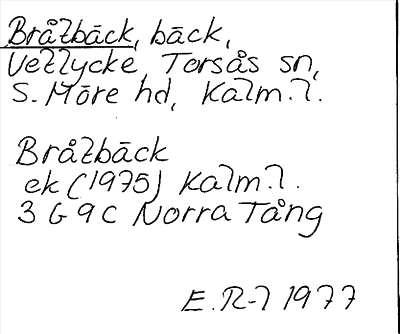 Bråtbäck, bäck,
Vetlycke, Torsås sn,
S. Möre hd, Kalm.l.
Bråtbäck
ek (1975) Kalm.l.
3 G 9 c Norra Tång
E. R-l 1977